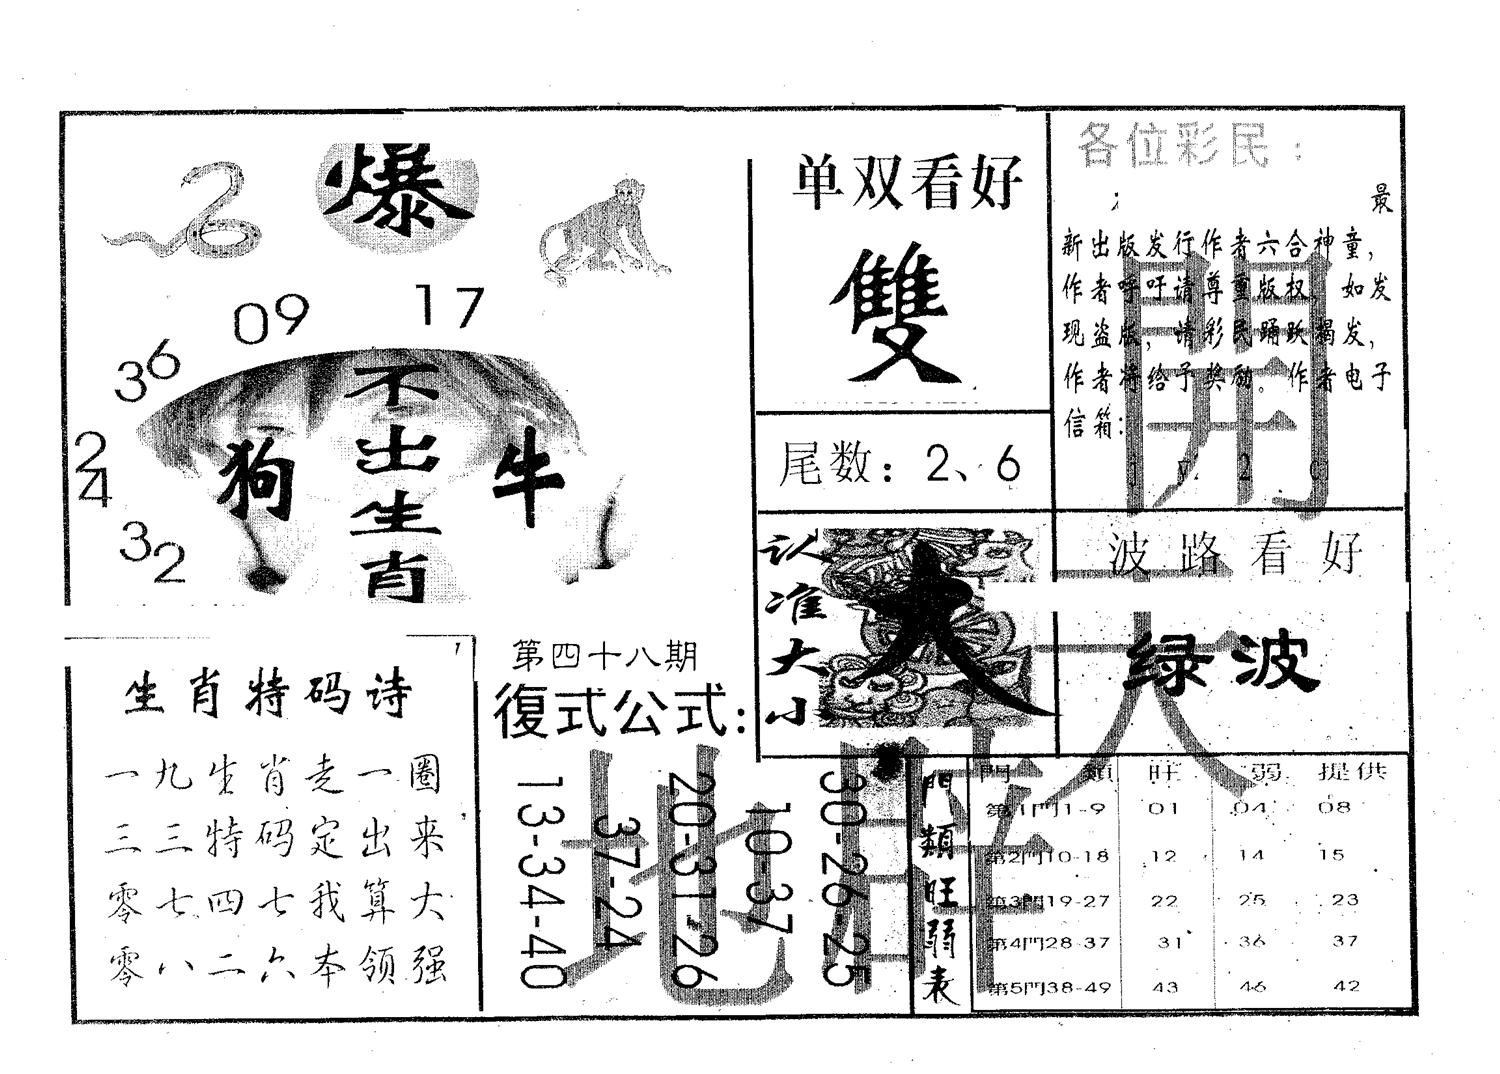 爆
09
17
36
24
32
不出生肖
狗
牛
单双看好
雙
尾数：2、6
认准大小
大
各位彩民：
最
新出版发行作者六合神童，
作者呼吁请尊重版权，如发
现盗版，请彩民踊跃揭发，
作者将给予奖励。作者电子
信箱：
開
波路看好
绿波
天
生肖特码诗
一九生肖走一圈
三三特码定出来
零七四七我算大
零八二六本领强
第四十八期
復式公式：
13-34-40
37-24
20-31-26
10-37
30-26-25
地
旺
門類旺弱表
門 類 旺 弱 提供
第1門1-9 01 04 08
第2門10-18 12 14 15
第3門19-27 22 25 23
第4門28-37 31 36 37
第5門38-49 43 46 42